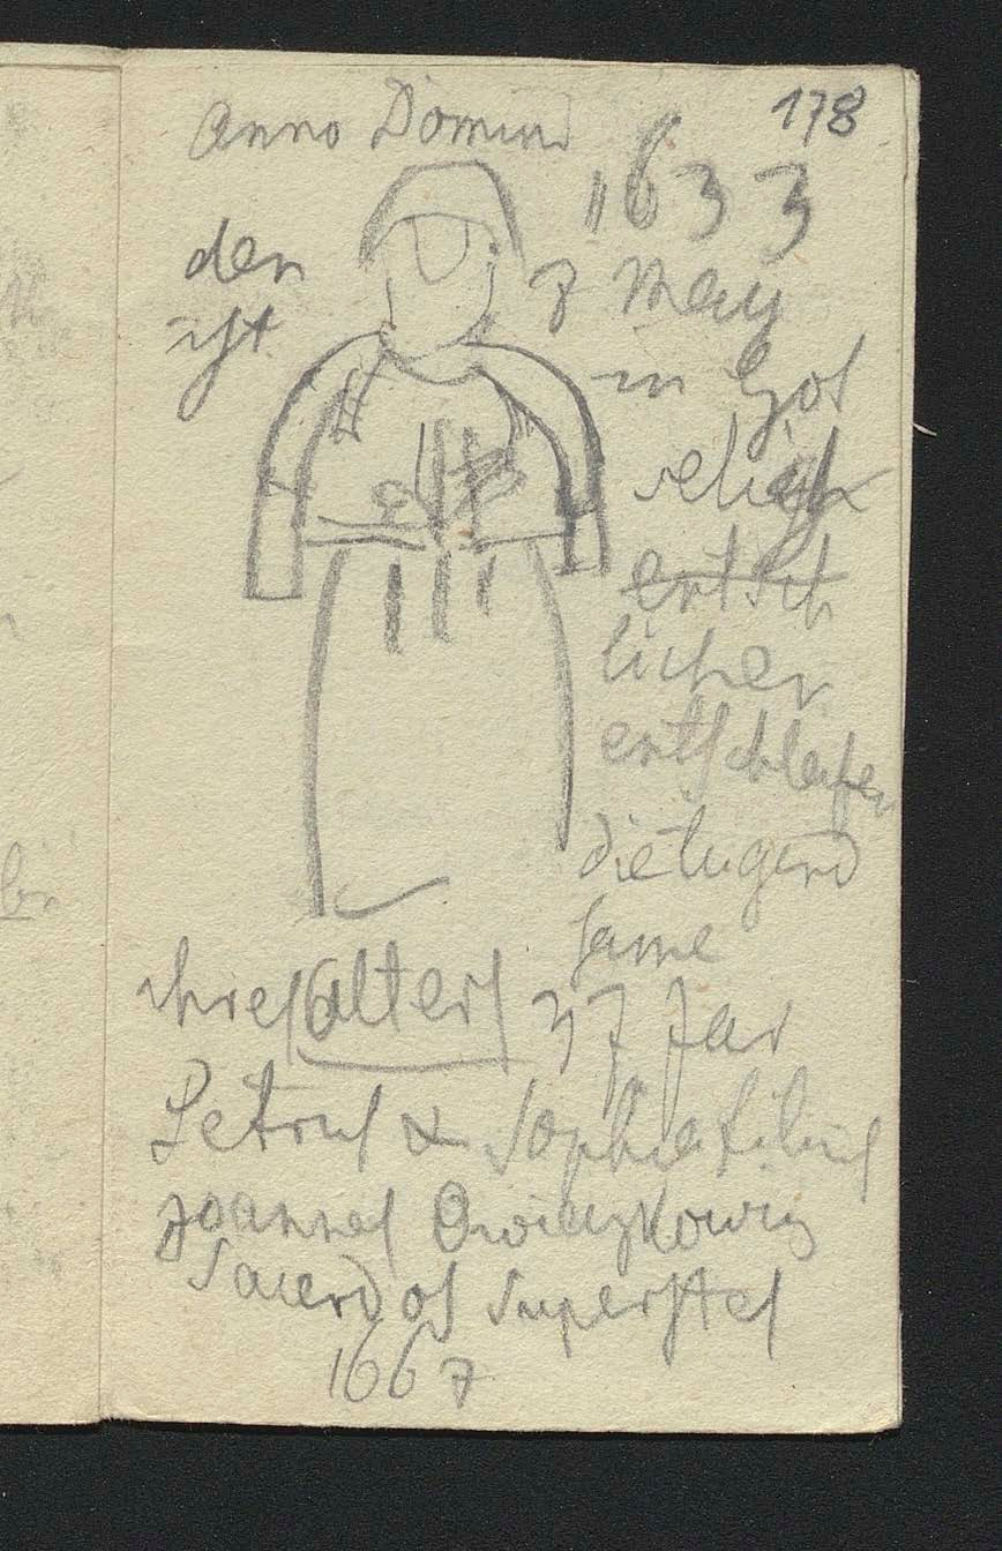 178
Anno Domini
1633
den
3 May
ist
in Got
selich
entsch
licher
entschlafen
die tugend
same
ihres alters 37 Jar
Petrus & Sophia filius
Joannes
Sacerdos Superstes
1667